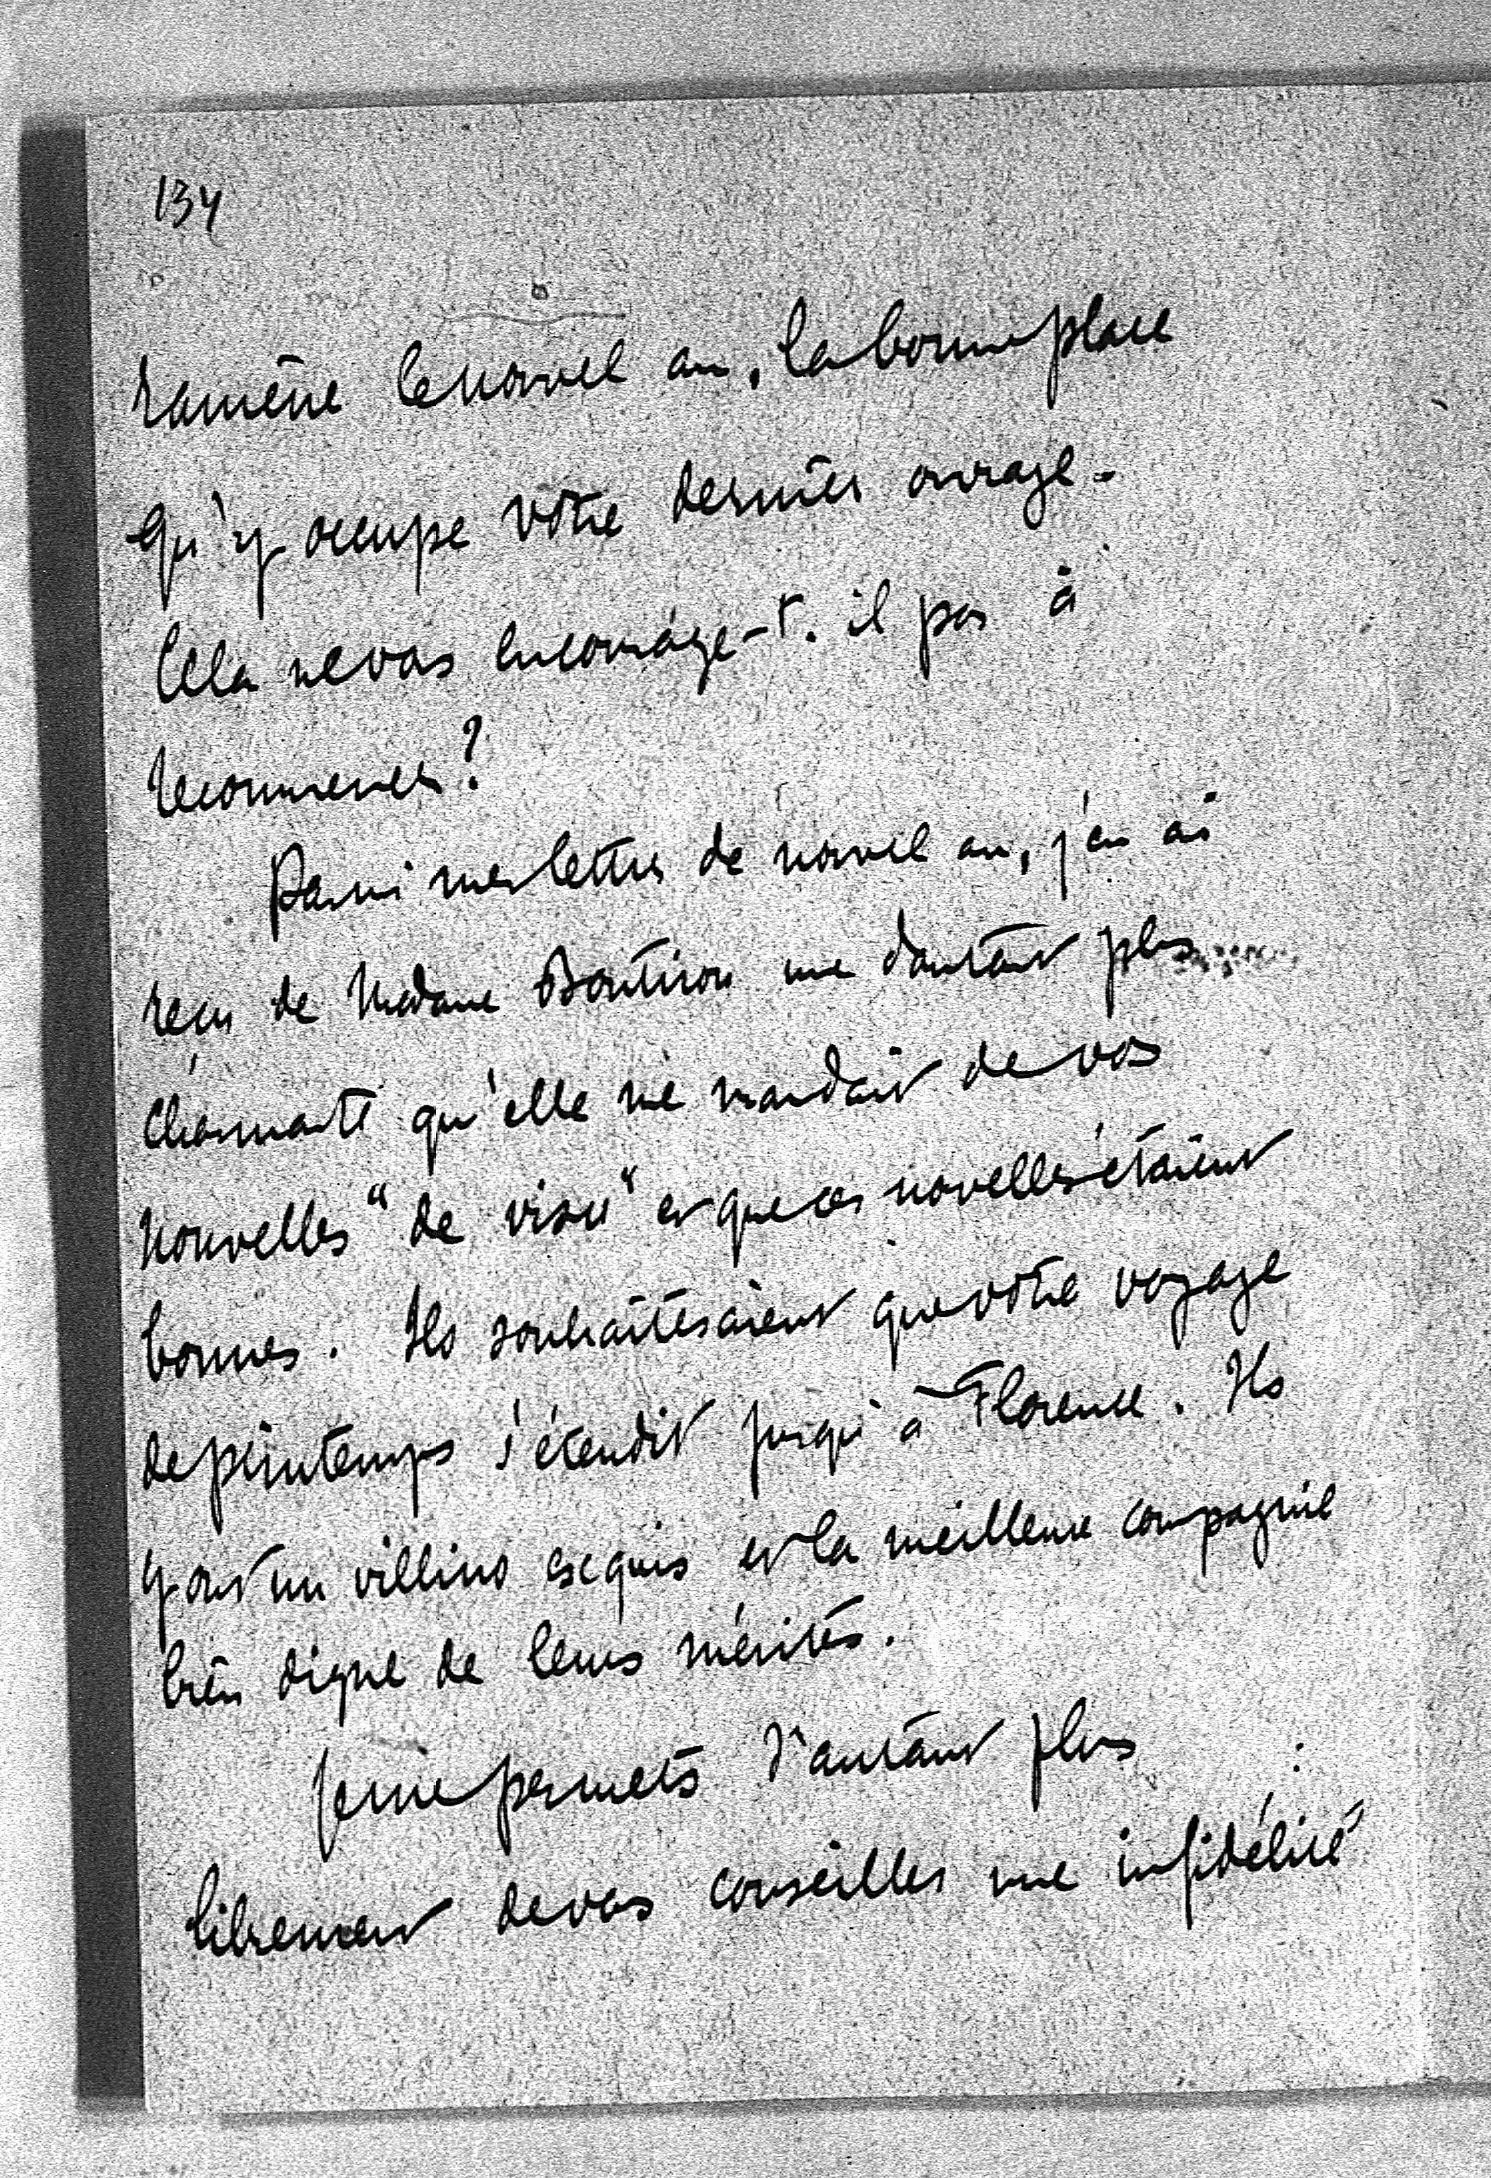 134
ramène le nouvel an, la bonne place
qu'y occupe votre dernier ouvrage.
Cela ne vous encourage-t-il pas à
recommencer?
Parmi mes lettres de nouvel an, j'en ai
reçu de Madame Boutiron une d'autant plus
charmante qu'elle me mandait de vos
nouvelles "de visu" et que ces nouvelles étaient
bonnes. Ils souhaiteraient que votre voyage
de printemps s'étendit jusqu'à Florence. Ils
y ont un villino exquis et la meilleure compagnie
bien digne de leurs mérites.
Je me permets d'autant plus
librement de vous conseiller une infidélité